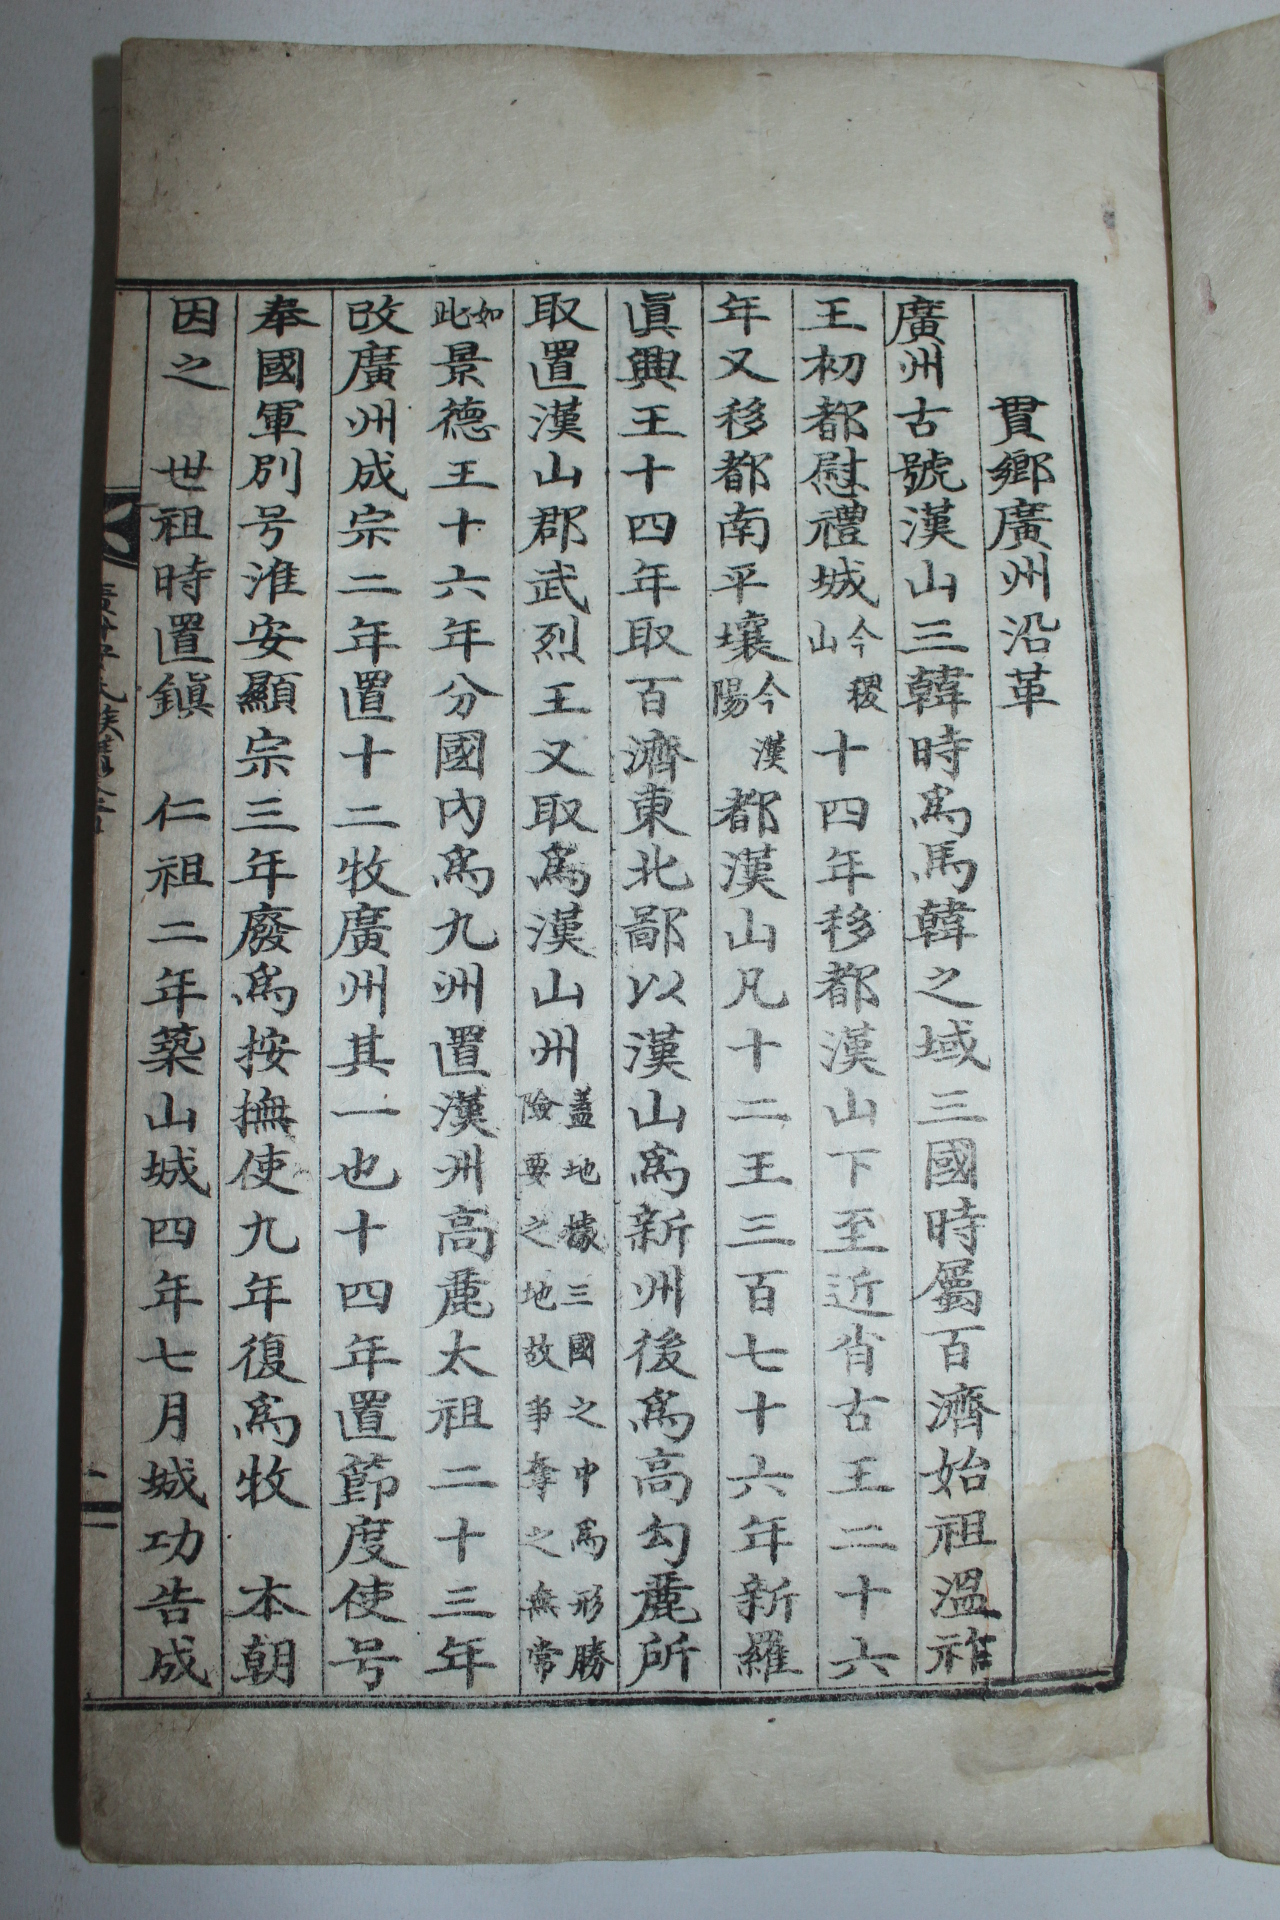 貫鄉廣州沿革
廣州古號漢山三韓時爲馬韓之域三國時屬百濟始祖溫祚
王初都慰禮城今稷山十四年移都漢山下至近肖古王二十六
年又移都南平壤今漢陽都漢山凡十二王三百七十六年新羅
眞興王十四年取百濟東北鄙以漢山爲新州後爲高勾麗所
取置漢山郡武烈王又取爲漢山州盖地據三國之中爲形勝險要之地故爭奪之無常
如此景德王十六年分國內爲九州置漢州高麗太祖二十三年
改廣州成宗二年置十二牧廣州其一也十四年置節度使号
奉國軍別号淮安顯宗三年廢爲按撫使九年復爲牧 本朝
因之 世祖時置鎭 仁祖二年築山城四年七月城功告成